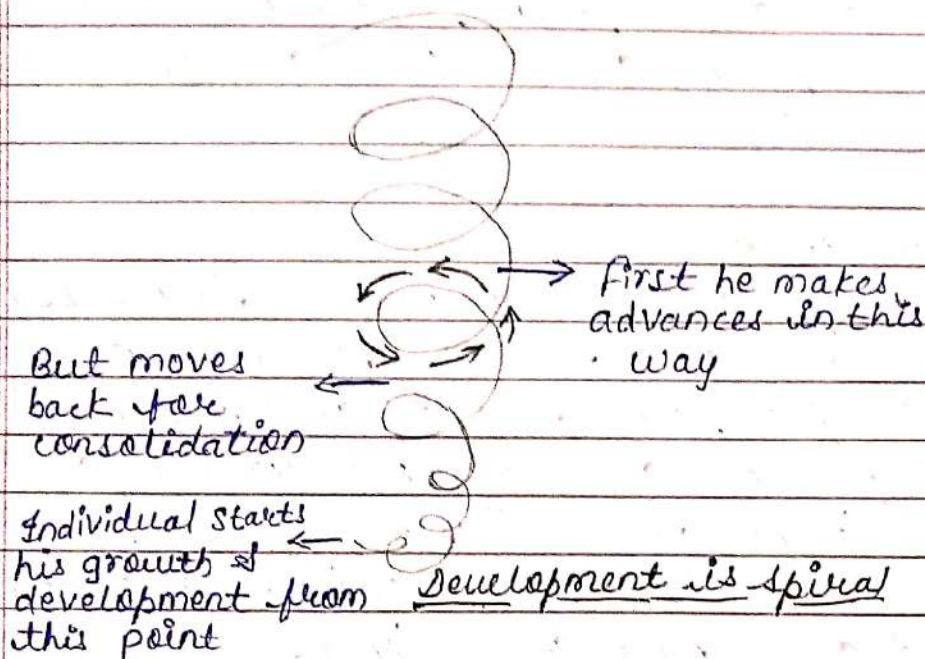 first he makes
advances in this
way
But moves
back for
consolidation
Individual starts
his growth &
development from
this point
Development is spiral